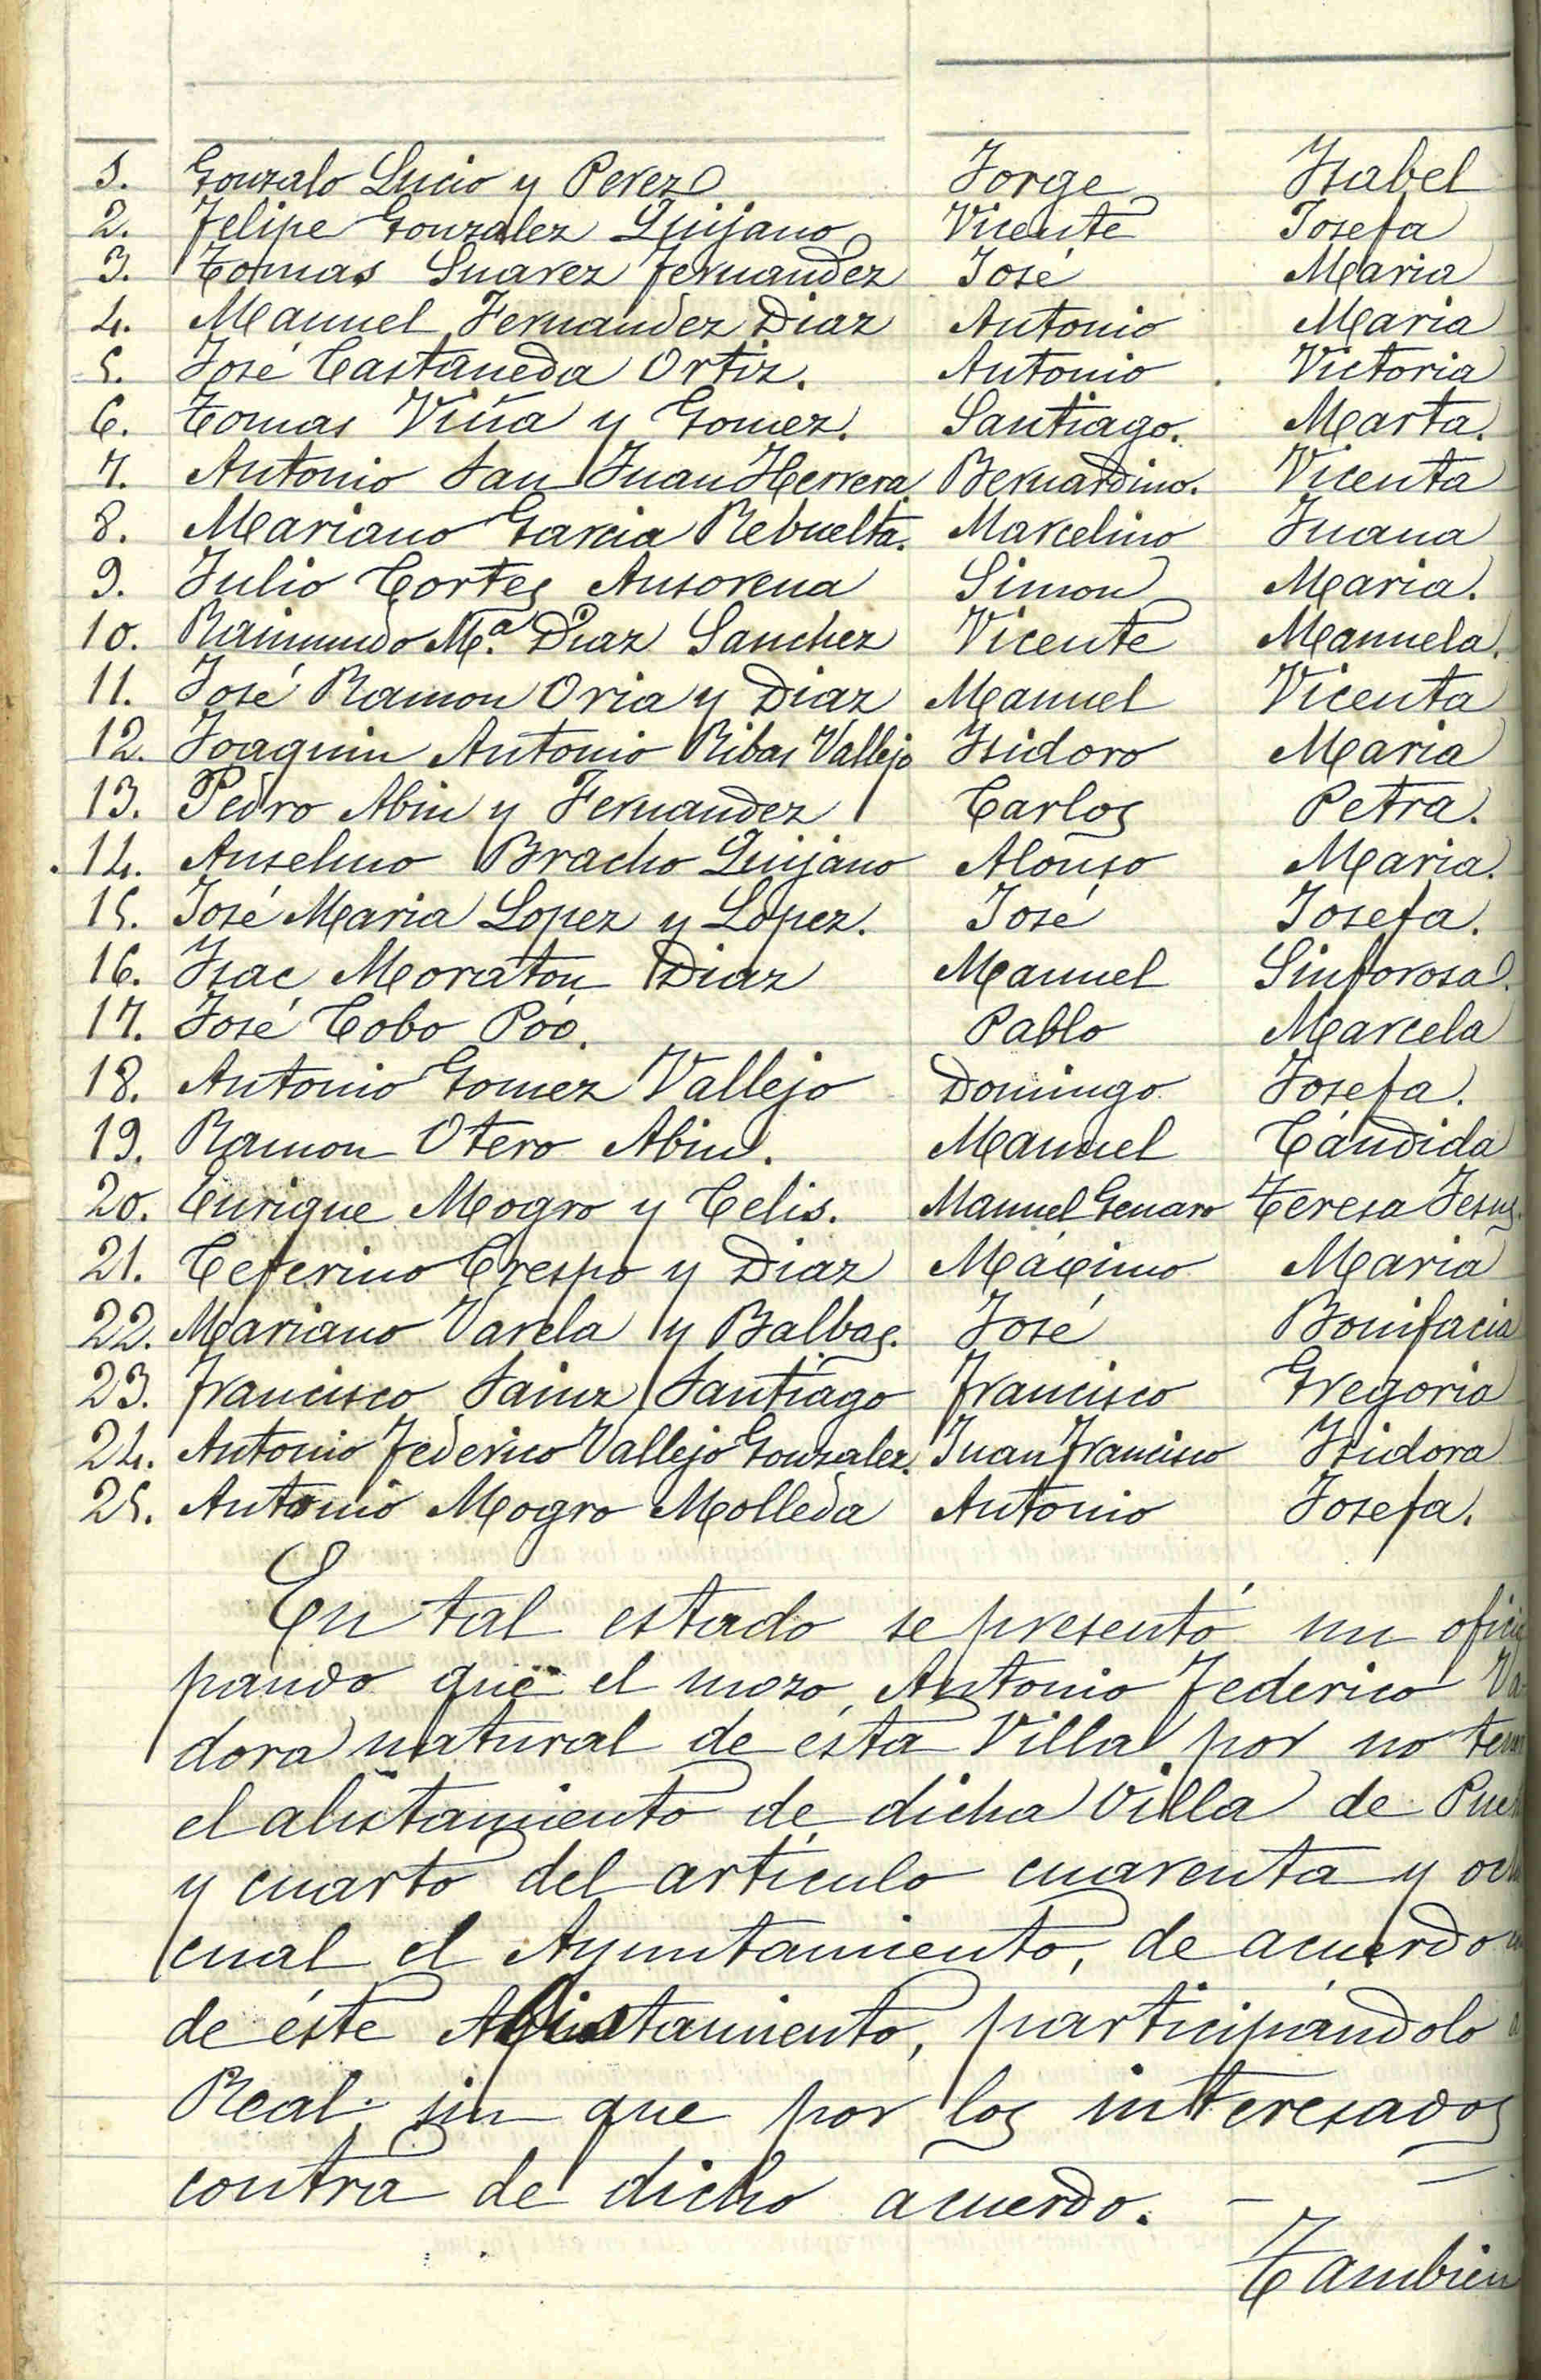 1. Gonzalo Lucio y Perez Jorge Isabel
2. Felipe Gonzalez Quijano Vicente Josefa
3. Tomas Suarez Fernandez José Maria
4. Manuel Fernandez Diaz Antonio Maria
5. José Castañeda Ortiz. Antonio Victoria
6. Tomas Viña y Gomez. Santiago. Marta.
7. Antonio San Juan Herrera Bernardino. Vicenta
8. Mariano Garcia Rebuelta. Marcelino Juana
9. Julio Cortes Ansorena Simon Maria.
10. Raimundo Mª. Diaz Sanchez Vicente Manuela.
11. José Ramon Oria y Diaz Manuel Vicenta
12. Joaquin Antonio Ribas Vallejo Isidoro Maria
13. Pedro Abin y Fernandez Carlos Petra.
14. Anselmo Bracho Quijano Alonso Maria.
15. José Maria Lopez y Lopez. José Josefa.
16. Isac Moraton Diaz Manuel Sinforosa.
17. José Cobo Póo. Pablo Marcela
18. Antonio Gomez Vallejo Domingo Josefa.
19. Ramon Otero Abin. Manuel Cándida
20. Enrique Mogro y Celis. Manuel Genaro Teresa Jesus.
21. Ceferino Crespo y Diaz Máximo Maria
22. Mariano Varela y Balbas. José Bonifacia
23. Francisco Sainz Santiago Francisco Gregoria
24. Antonio Federico Vallejo Gonzalez. Juan Francisco Isidora
25. Antonio Mogro Molleda Antonio Josefa.
En tal estado se presentó un ofici
pando que el mozo Antonio Federico Va
dora natural de ésta Villa por no ten
el alistamiento de dicha Villa de Pue
y cuarto del artículo cuarenta y och
cual el Ayuntamiento, de acuerdo
de éste Alistamiento, participándolo
Real; sin que por los interesados
contra de dicho acuerdo. —
Tambien